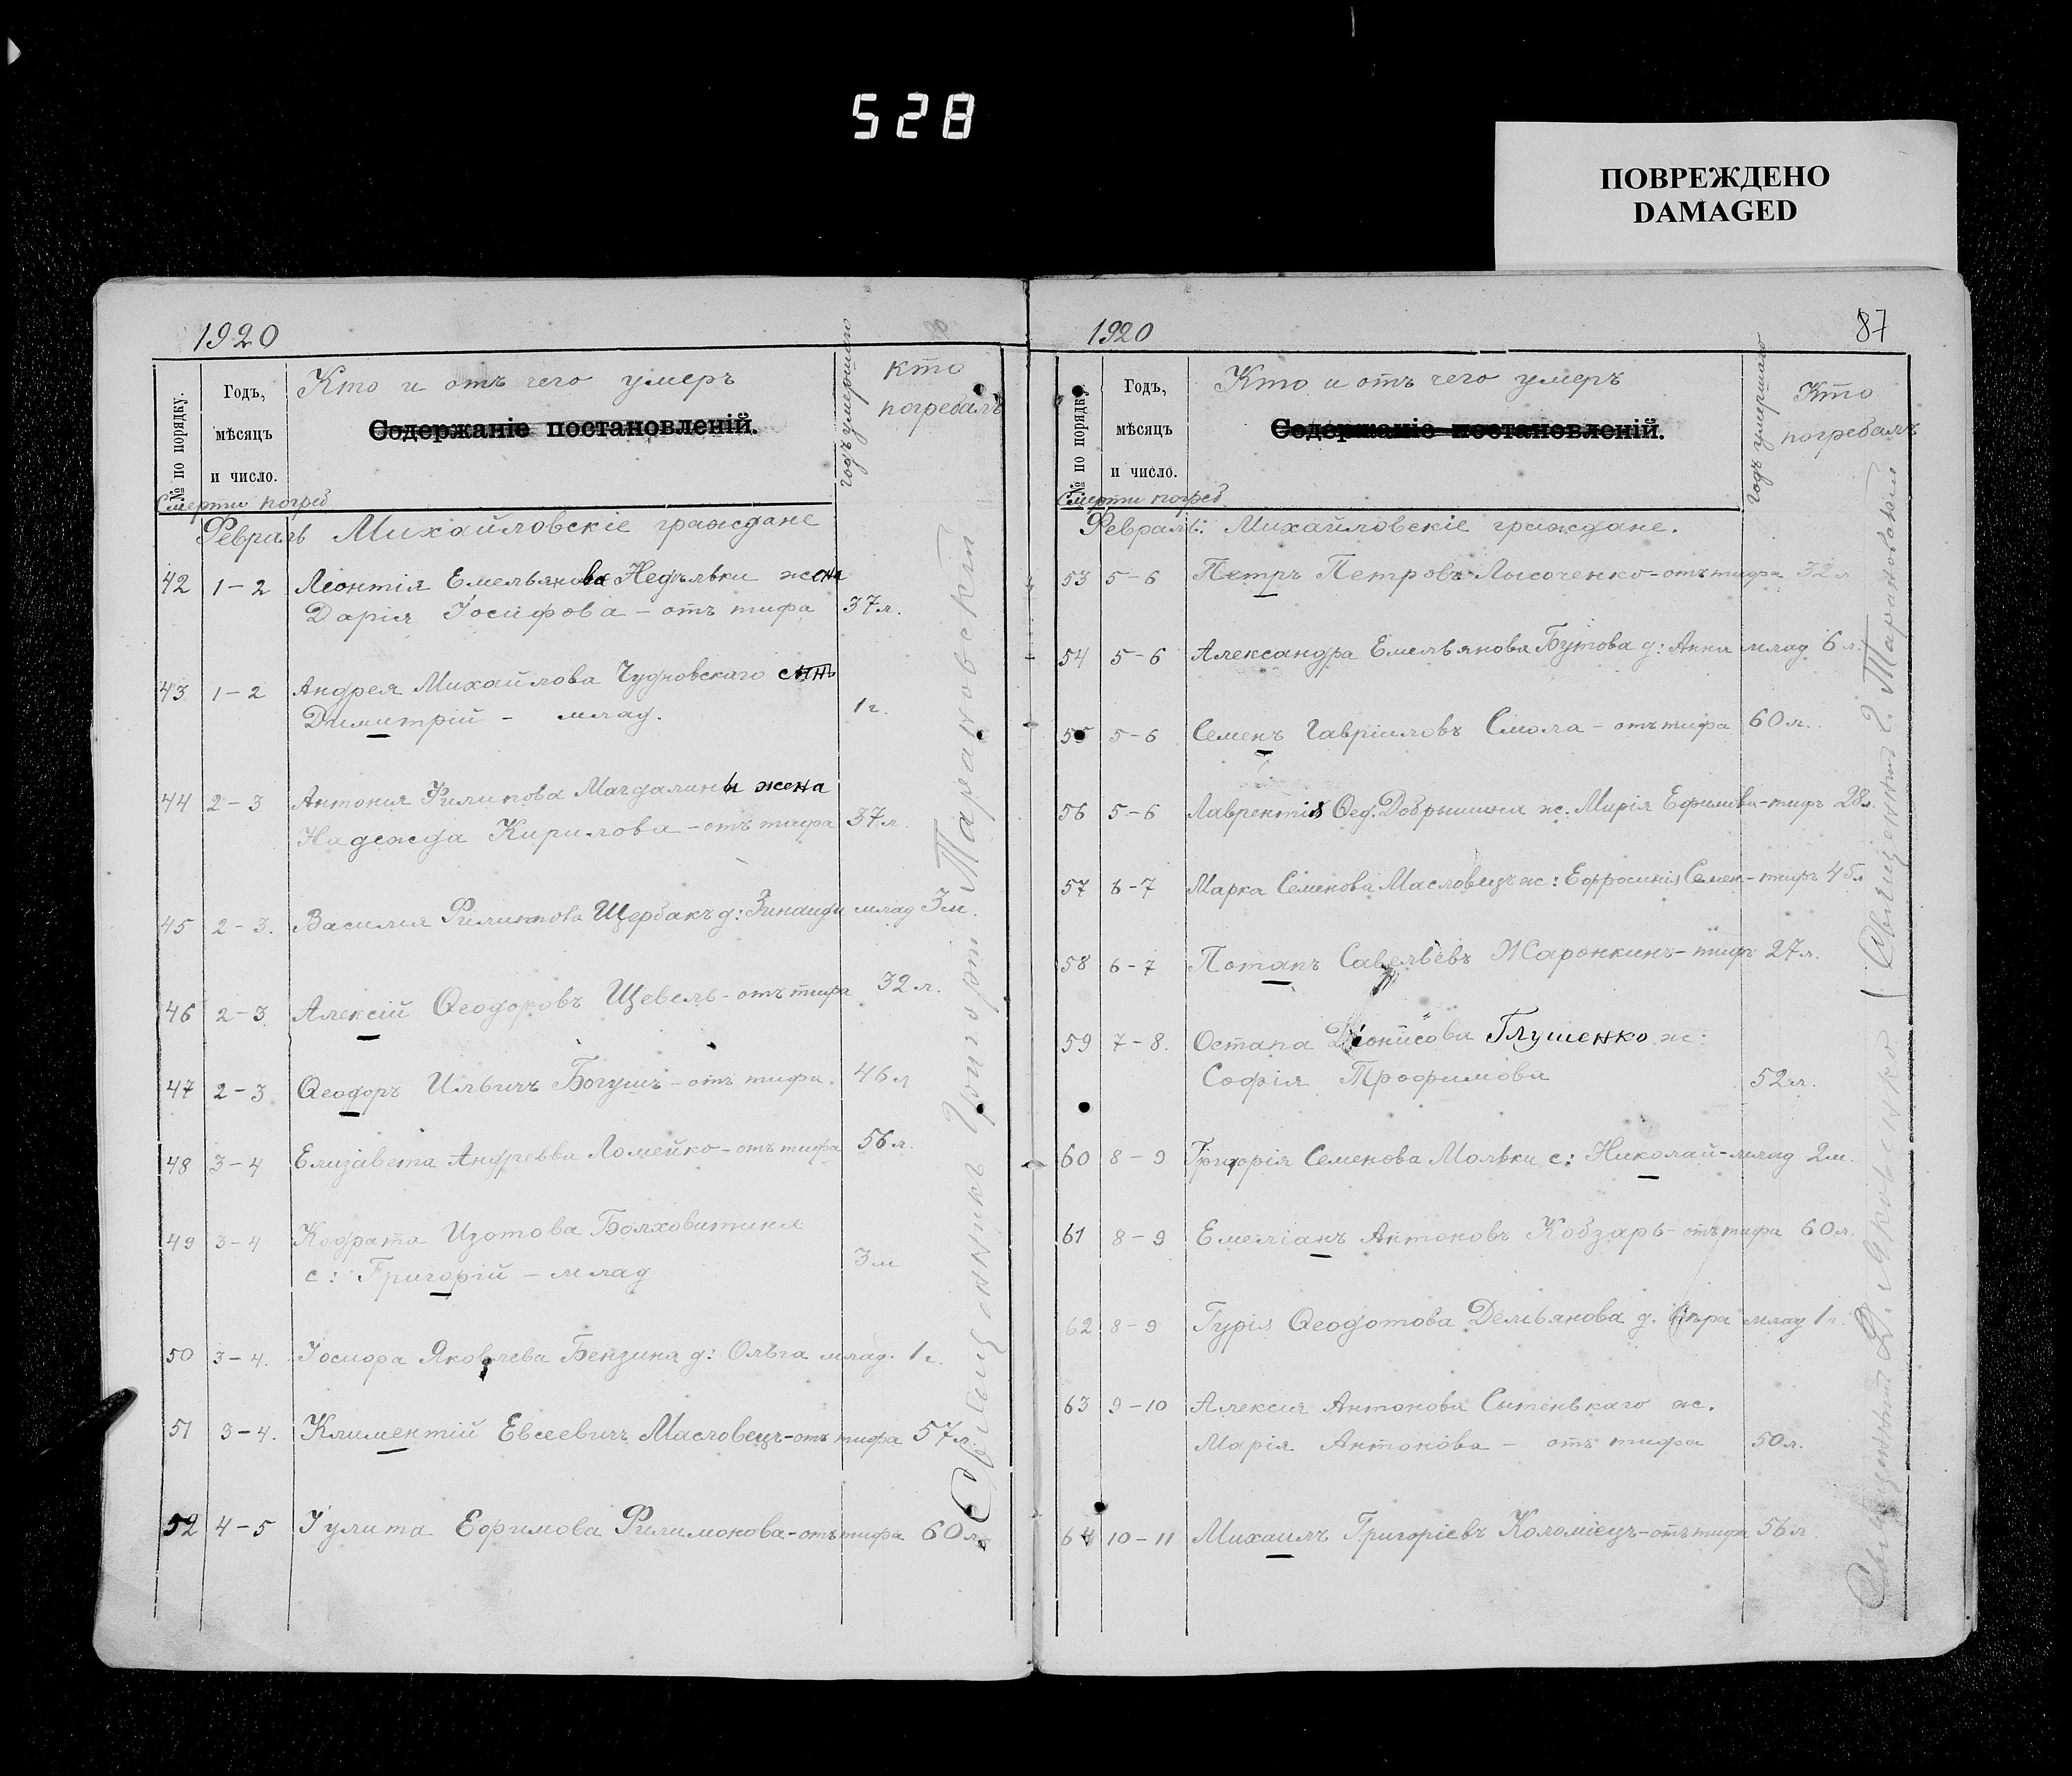 528
ПОВРЕЖДЕНО
DAMAGED
1920
№ по порядку.
Годъ,
мѣсяцъ
и число.
Смерти погреб
Кто и отъ чего умеръ
Содержаніе постановленій.
Годъ умершаго
кто
погребалъ
Февраль Михайловскіе граждане
42 1-2 Леонтія Емельянова Недѣльки жена
Дарія Іосифова - отъ тифа 37 л.
43 1-2 Андрея Михайлова Чудновскаго сынъ
Димитрій - млад. 1 г.
44 2-3 Антонія Филипова Магдалины жена
Надежда Кирилова - отъ тифа 37 л.
45 2-3. Василія Филипова Щербакъ д: Зинаида млад 3 м.
46 2-3 Алексій Ѳеодоровъ Щевель - отъ тифа 32 л.
47 2-3 Ѳеодоръ Ильичъ Богушъ - отъ тифа. 46 л
48 3-4 Елизавета Андреевва Ломейко - отъ тифа 56 л.
49 3-4 Кодрата Изотова Болховитина
с: Григорій - млад 3 м
50 3-4. Яковлева Бензина д: Ольга млад. 1 г.
51 3-4. Климентій Евсеевичъ Масловецъ - отъ тифа 57 л.
52 4-5 Іулита Ефимова Филимонова - отъ тифа 60 л.
Священникъ Григорій Тарановскій
1920
87
№ по порядку
Годъ,
мѣсяцъ
и число.
Смерти погреб
Кто и отъ чего умеръ
Содержаніе постановленій.
Годъ умершаго
Кто
погребалъ
Февраль: Михайловскіе граждане.
53 5-6 Петръ Петровъ Лысоченко - отъ тифа 32 л
54 5-6 Александра Емельянова Бутова д: Анна млад 6 л.
55 5-6 Семенъ Гавріиловъ Смола - отъ тифа 60 л.
56 5-6 Лаврентія Ѳед. Добрышина ж: Марія Ефимова - тифъ 28 л.
57 6-7 Марка Семенова Масловецъ ж: Ефросинія Семен - тифъ 45 л
58 6-7 Потапъ Савельевъ Жаронкинъ - тифъ 27 л.
59 7-8. Остапа Діонисова Глушенко ж:
Софія Трофимова 52 л.
60 8-9 Григорія Семенова Мольки с: Николай - млад 2 м.
61 8-9 Емеліанъ Антоновъ Кобзарь - отъ тифа 60 л.
62 8-9 Гурія Ѳеодотова Демьянова д. млад 1 г.
63 9-10 Алексія Антонова Сытенькаго ж.
Марія Антонова - отъ тифа 50 л.
64 10-11 Михаилъ Григоріевъ Коломіецъ - отъ тифа 56 л
Священникъ Д. Яковенко / Священникъ Г. Тарановскій